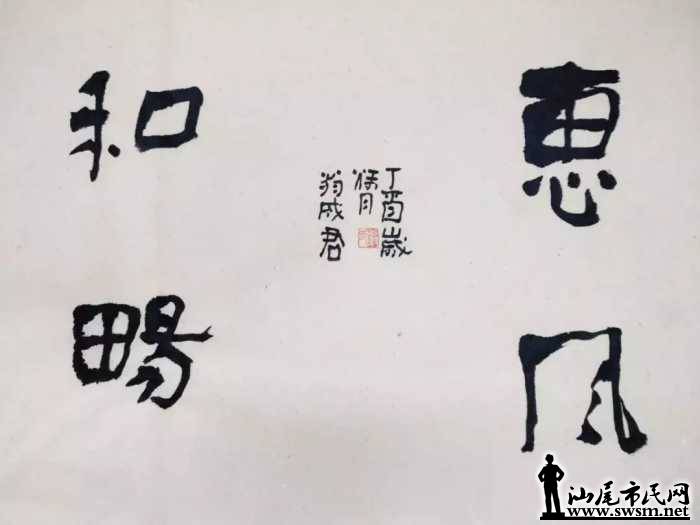 惠风
和畼
丁酉歲
月
翁成君
汕尾市民网
www.swsm.net